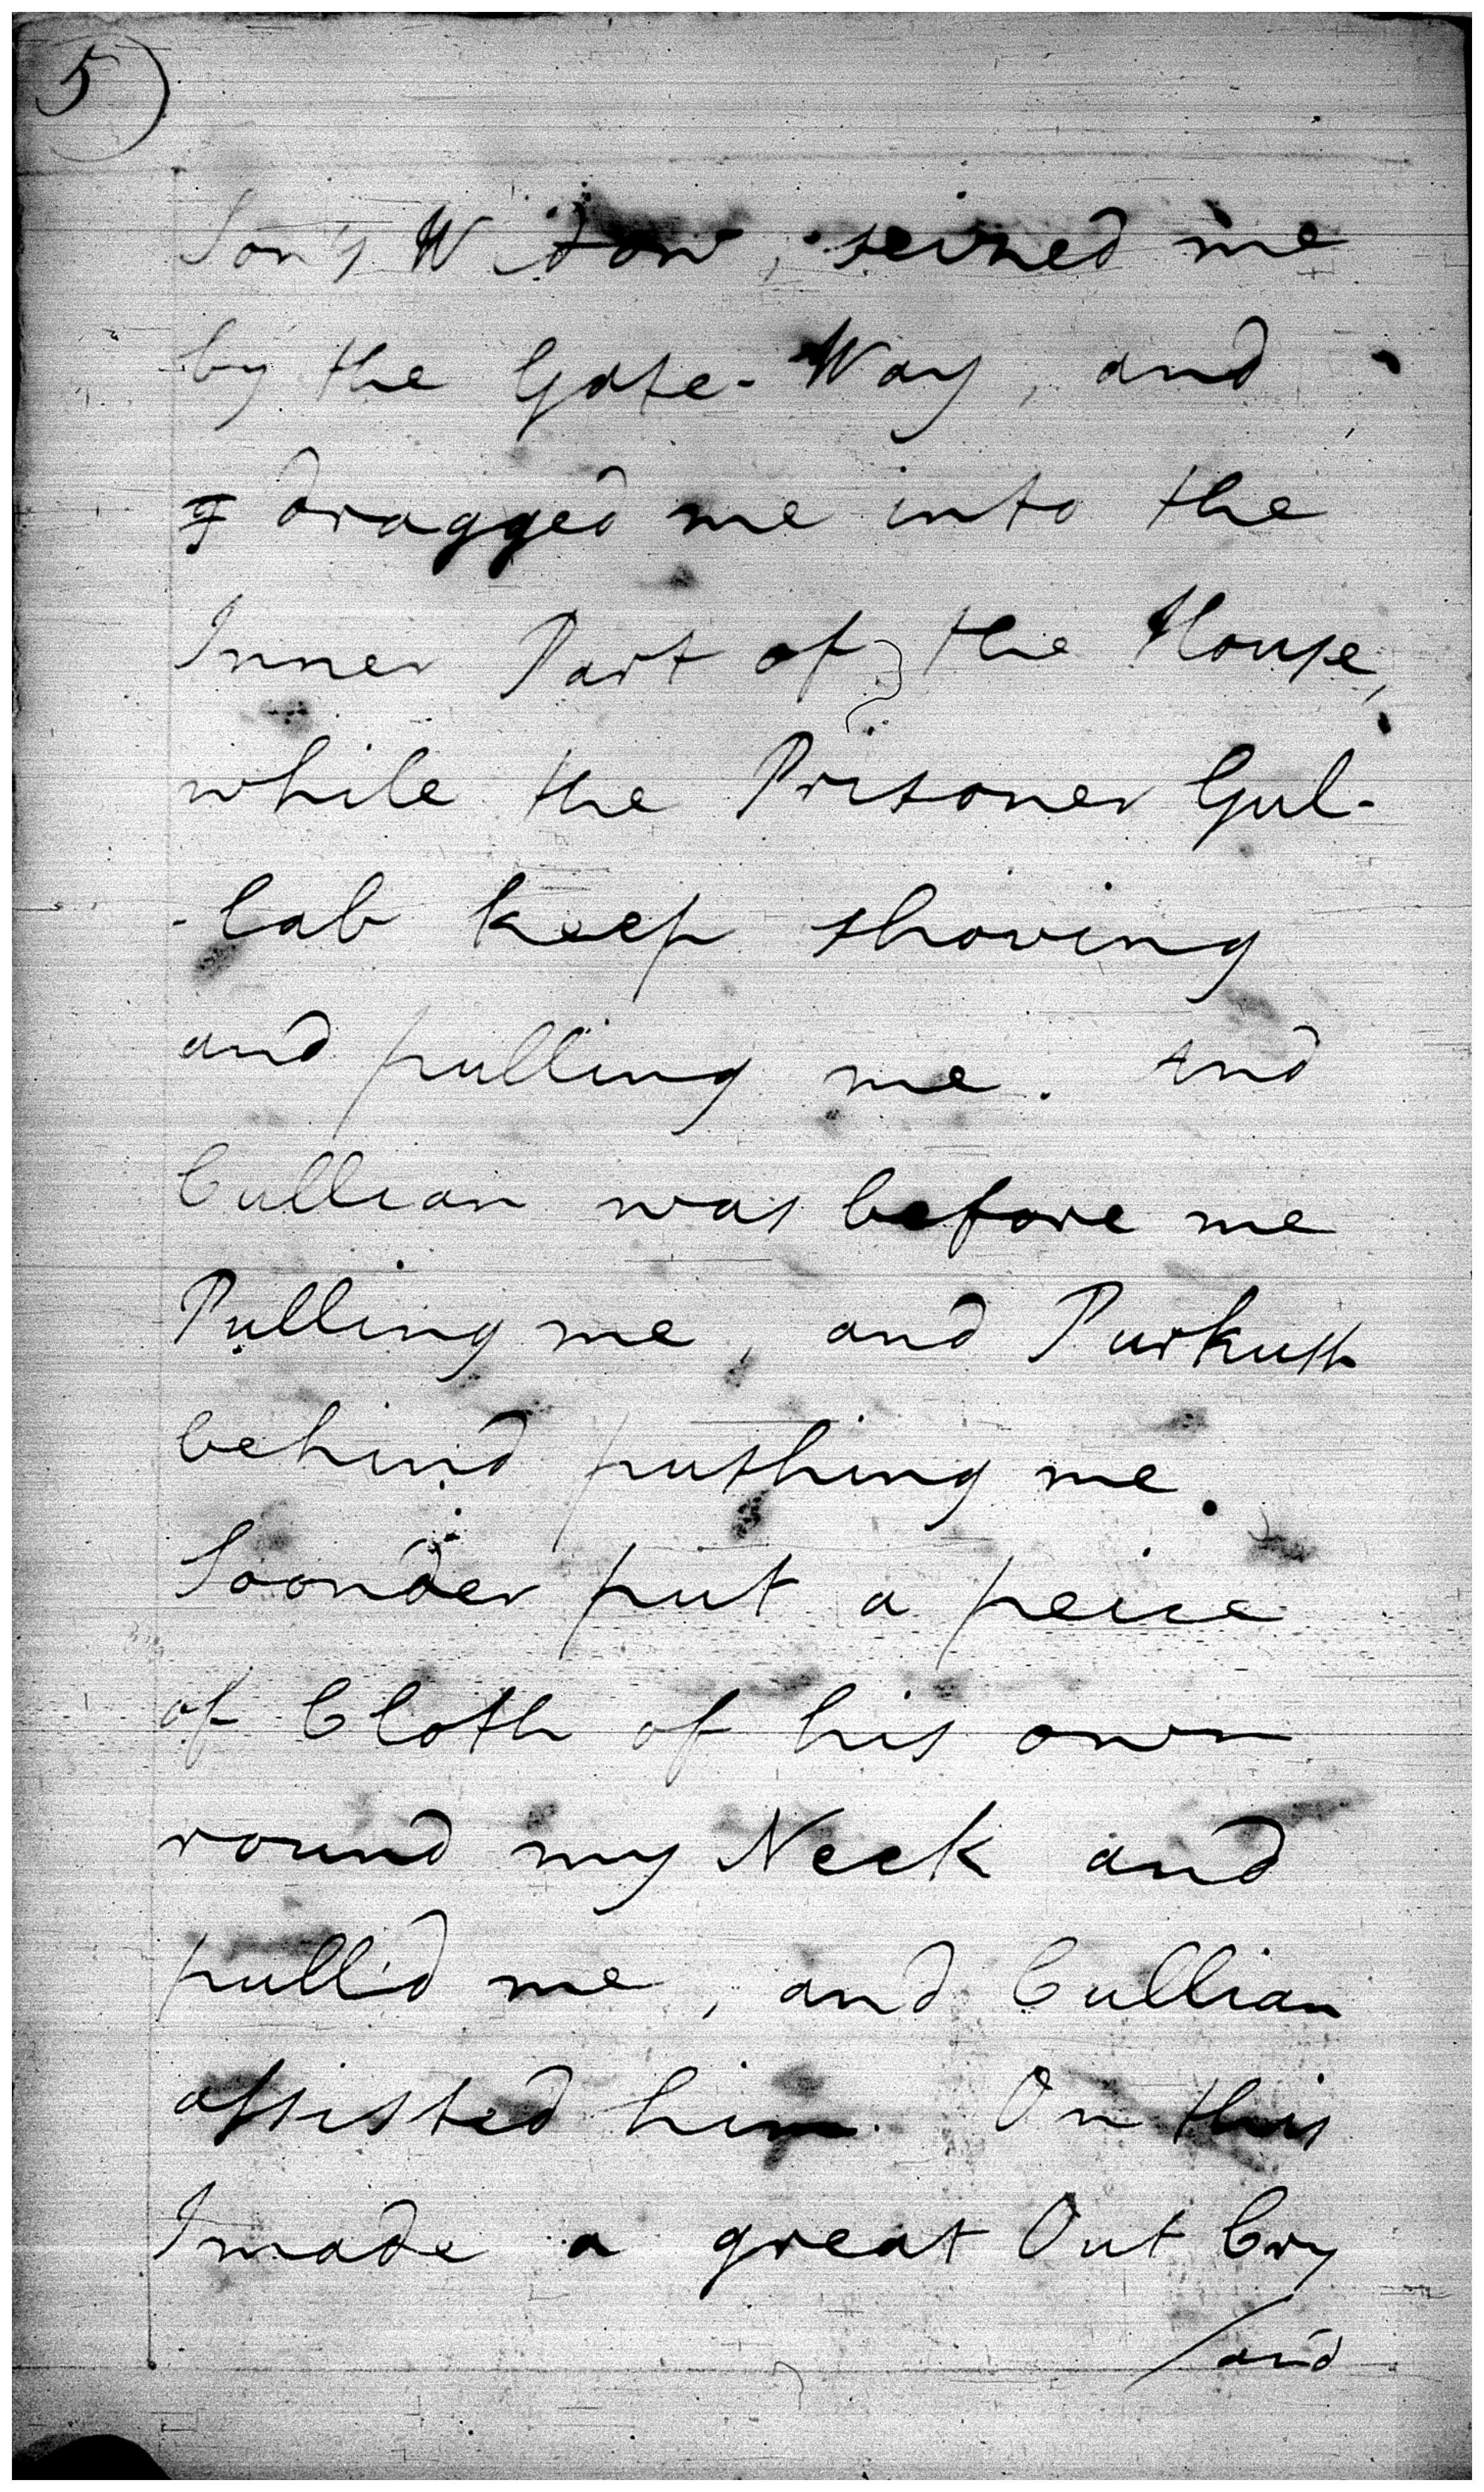 5)
Son's Widow, seized me
by the Gate-Way, and
dragged me into the
Inner Part of the House,
while the Prisoner Gul-
-lab keep shoving
and pulling me. And
Cullian was before me
Pulling me, and Purkush
behind pushing me.
Soonder put a peice
of Cloth of his own
round my Neck and
pull'd me, and Cullian
assisted him. On this
I made a great Out Cry
/and